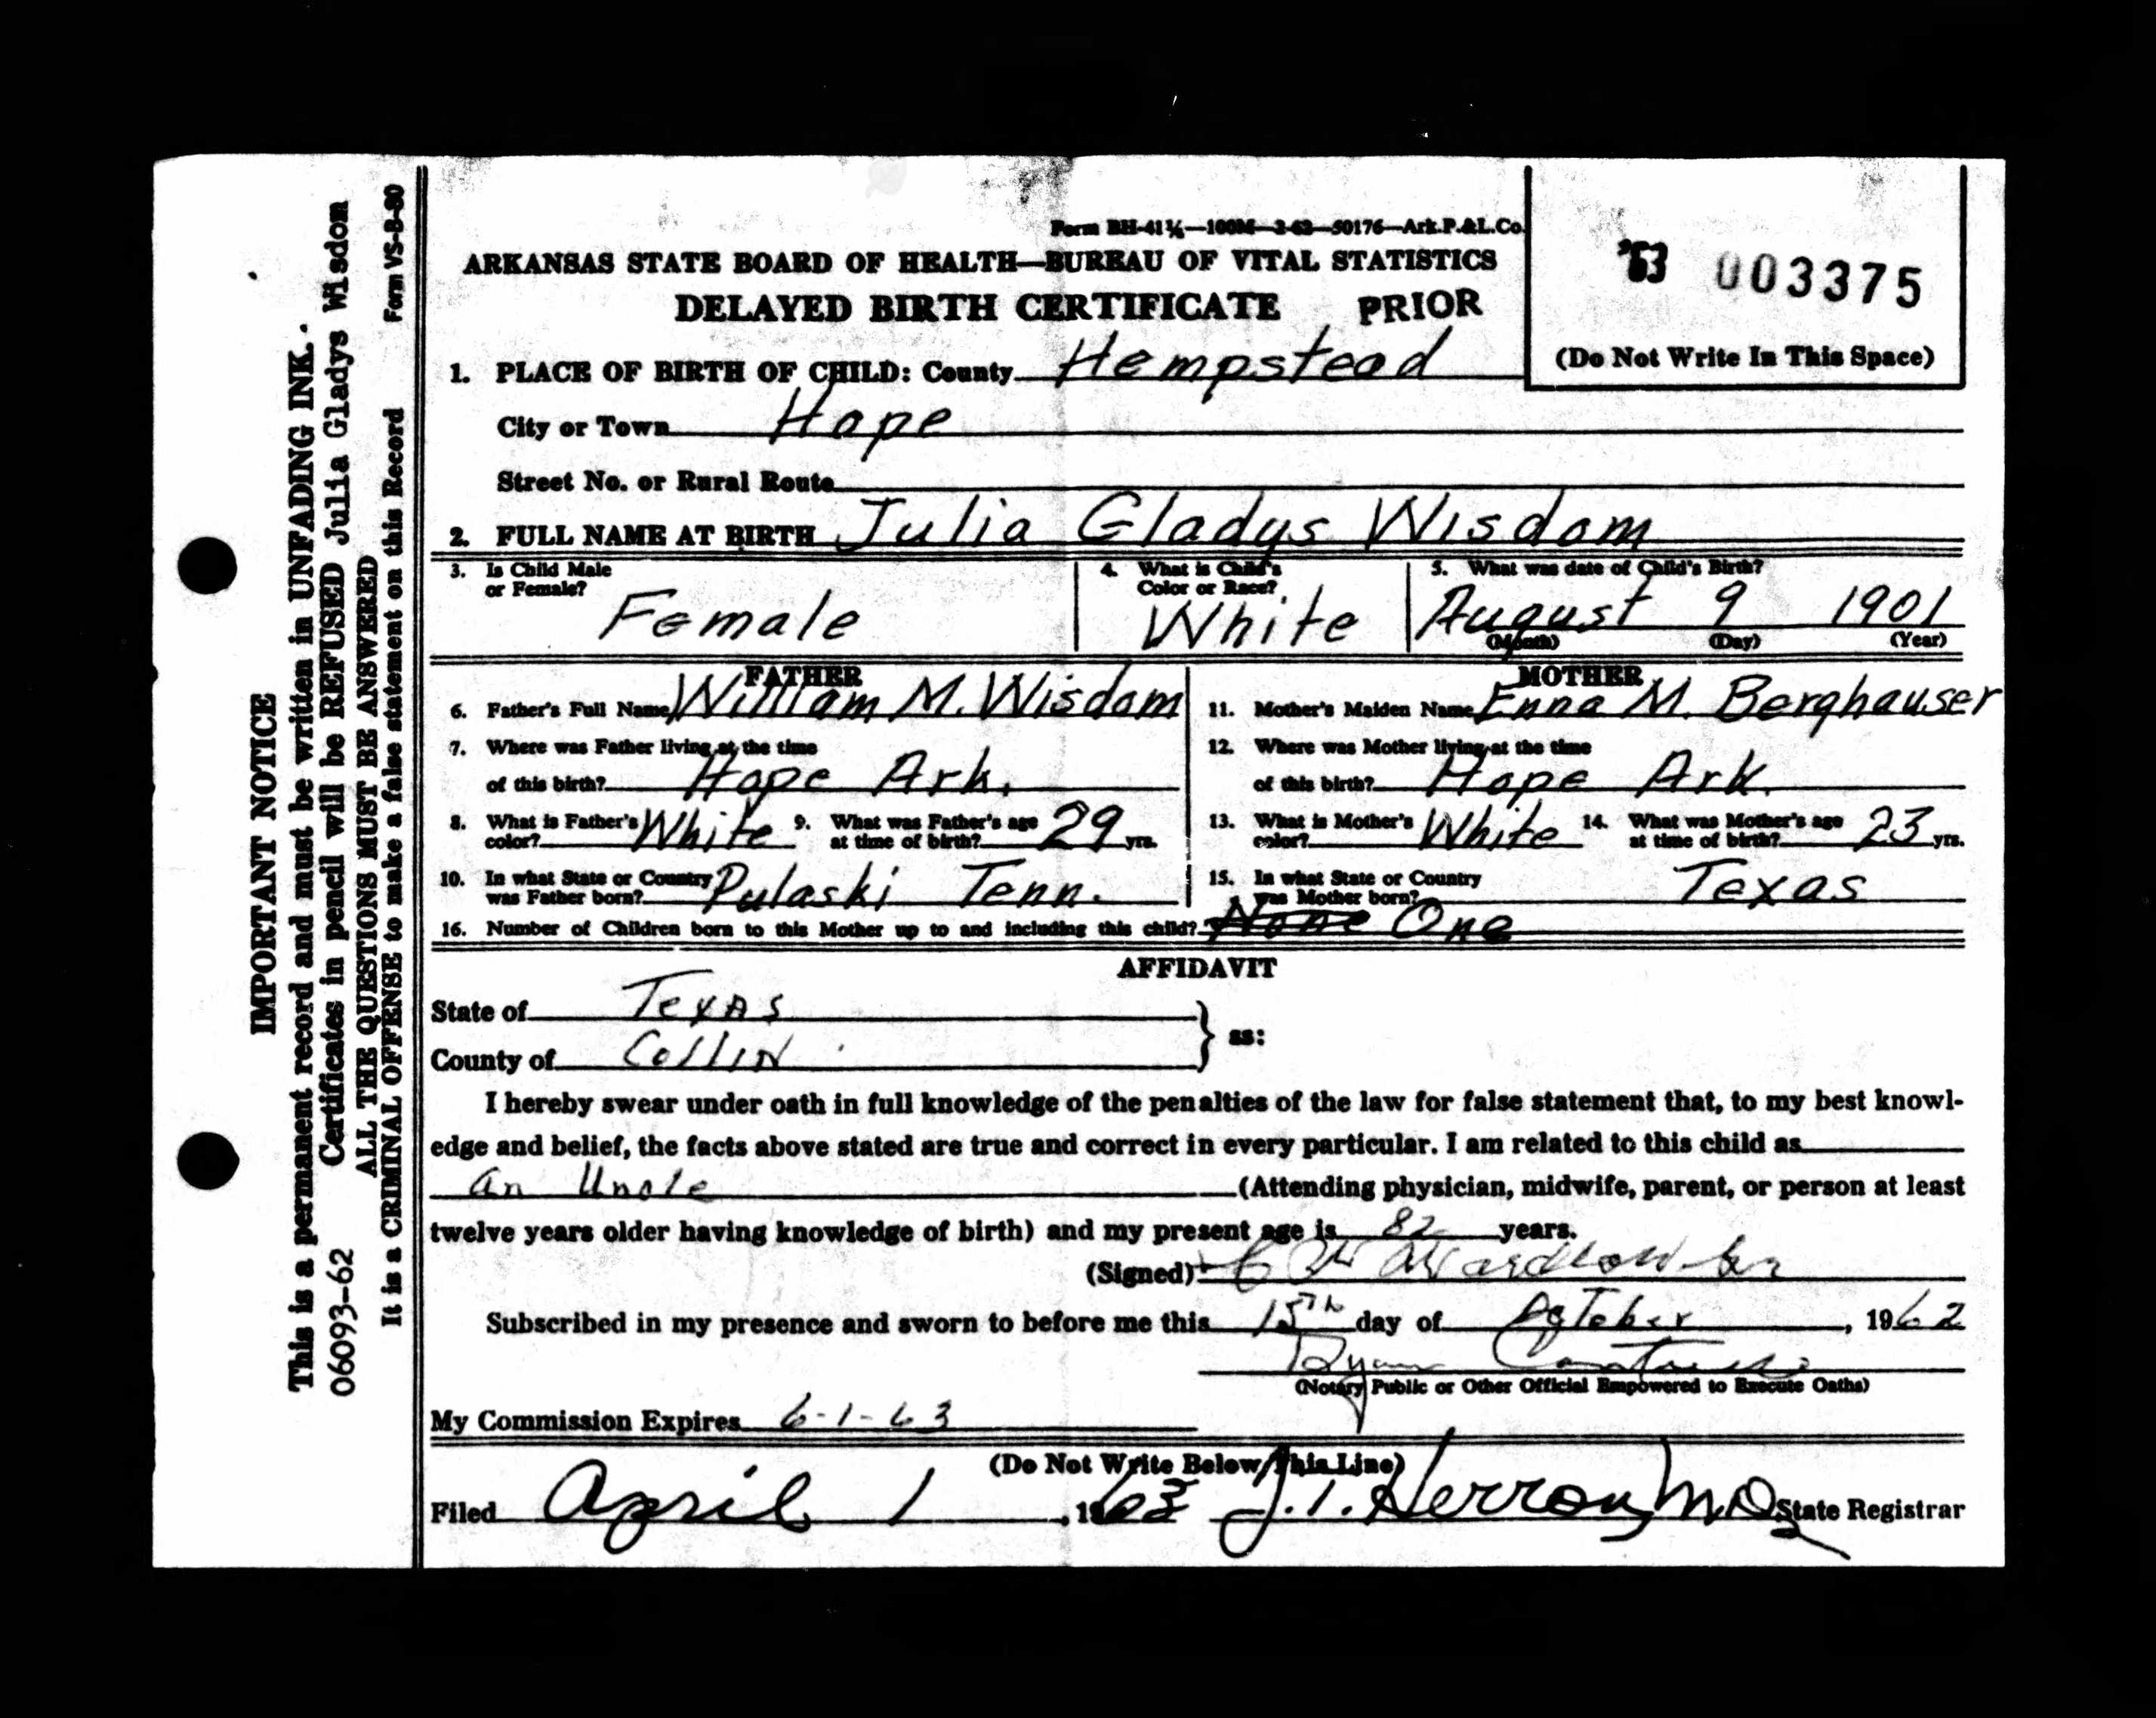 IMPORTANT NOTICE
This is a permanent record and must be written in UNFADING INK.
Certificates in pencil will be REFUSED
06093-62 Julia Gladys Wisdon
ALL THE QUESTIONS MUST BE ANSWERED
It is a CRIMINAL OFFENSE to make a false statement on this Record Form VS-B-80
Form BH-41½—100M—2-62—50176—Ark.P.&L.Co.
ARKANSAS STATE BOARD OF HEALTH—BUREAU OF VITAL STATISTICS
DELAYED BIRTH CERTIFICATE PRIOR
'63 003375
(Do Not Write In This Space)
1. PLACE OF BIRTH OF CHILD: County Hempstead
City or Town Hope
Street No. or Rural Route
2. FULL NAME AT BIRTH Julia Gladys Wisdom
3. Is Child Male or Female? Female
4. What is Child's Color or Race? White
5. What was date of Child's Birth?
August 9 1901
(Month) (Day) (Year)
FATHER
6. Father's Full Name William M. Wisdom
7. Where was Father living at the time
of this birth? Hope Ark.
8. What is Father's color? White 9. What was Father's age at time of birth? 29 yrs.
10. In what State or Country was Father born? Pulaski Tenn.
MOTHER
11. Mother's Maiden Name Enna M. Berghauser
12. Where was Mother living at the time
of this birth? Hope Ark.
13. What is Mother's color? White 14. What was Mother's age at time of birth? 23 yrs.
15. In what State or Country was Mother born? Texas
16. Number of Children born to this Mother up to and including this child? None One
AFFIDAVIT
State of Texas
County of Collin } ss:
I hereby swear under oath in full knowledge of the penalties of the law for false statement that, to my best knowl-
edge and belief, the facts above stated are true and correct in every particular. I am related to this child as
an Uncle (Attending physician, midwife, parent, or person at least
twelve years older having knowledge of birth) and my present age is 82 years.
(Signed) Wardlow
Subscribed in my presence and sworn to before me this 15th day of October, 1962
(Notary Public or Other Official Empowered to Execute Oaths)
My Commission Expires 6-1-63
(Do Not Write Below This Line)
Filed April 1, 1963 J.T. Herron, M.D. State Registrar